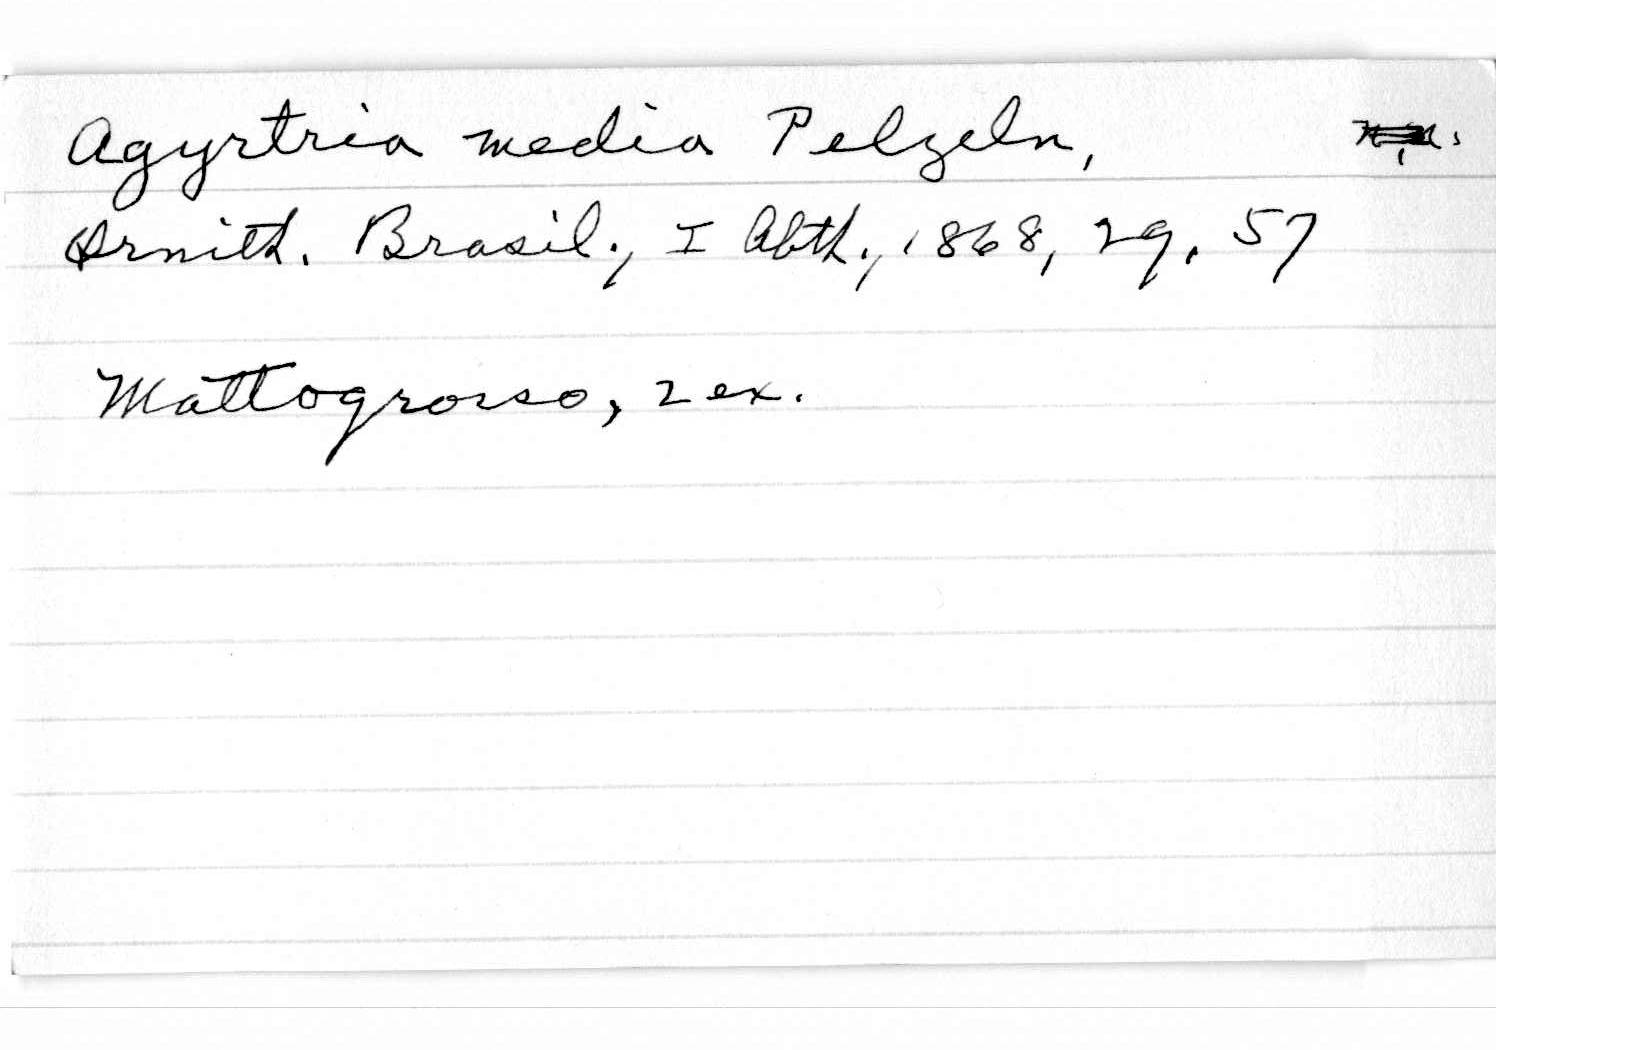 Agyrtria media Pelzeln,
Ornith. Brasil., I Abth., 1868, 29. 57
Mattogrosso, 2 ex.